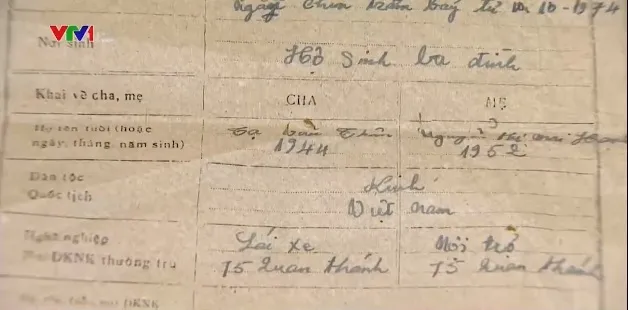 VTV1
ngày chín trăm bảy tư 10-1974
Nơi sinh
Hộ Sinh ba đình
Khai về cha, mẹ
CHA
MẸ
Họ tên tuổi (hoặc
ngày, tháng, năm sinh)
Tạ văn
1944
Nguyễn thị
1952
Dân tộc
Quốc tịch
Kinh
Việt nam
Nghề nghiệp
ĐKNK thường trú
Lái xe
Nội trợ
75 Quan thánh
75 Quan thánh
ĐKNK